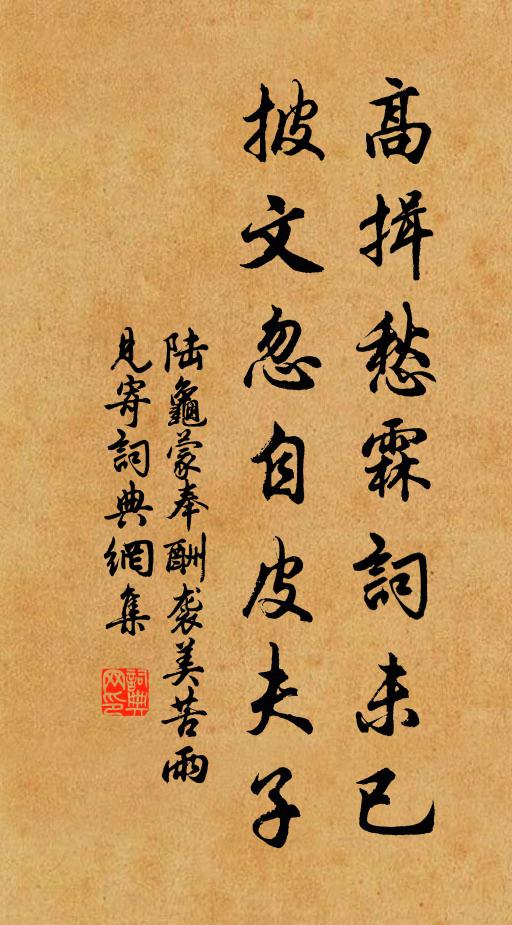 高揖愁霖詞未已
披文忽自皮夫子
陸龜蒙奉酬袭美苦雨
見寄詞典網集
詞典
网印